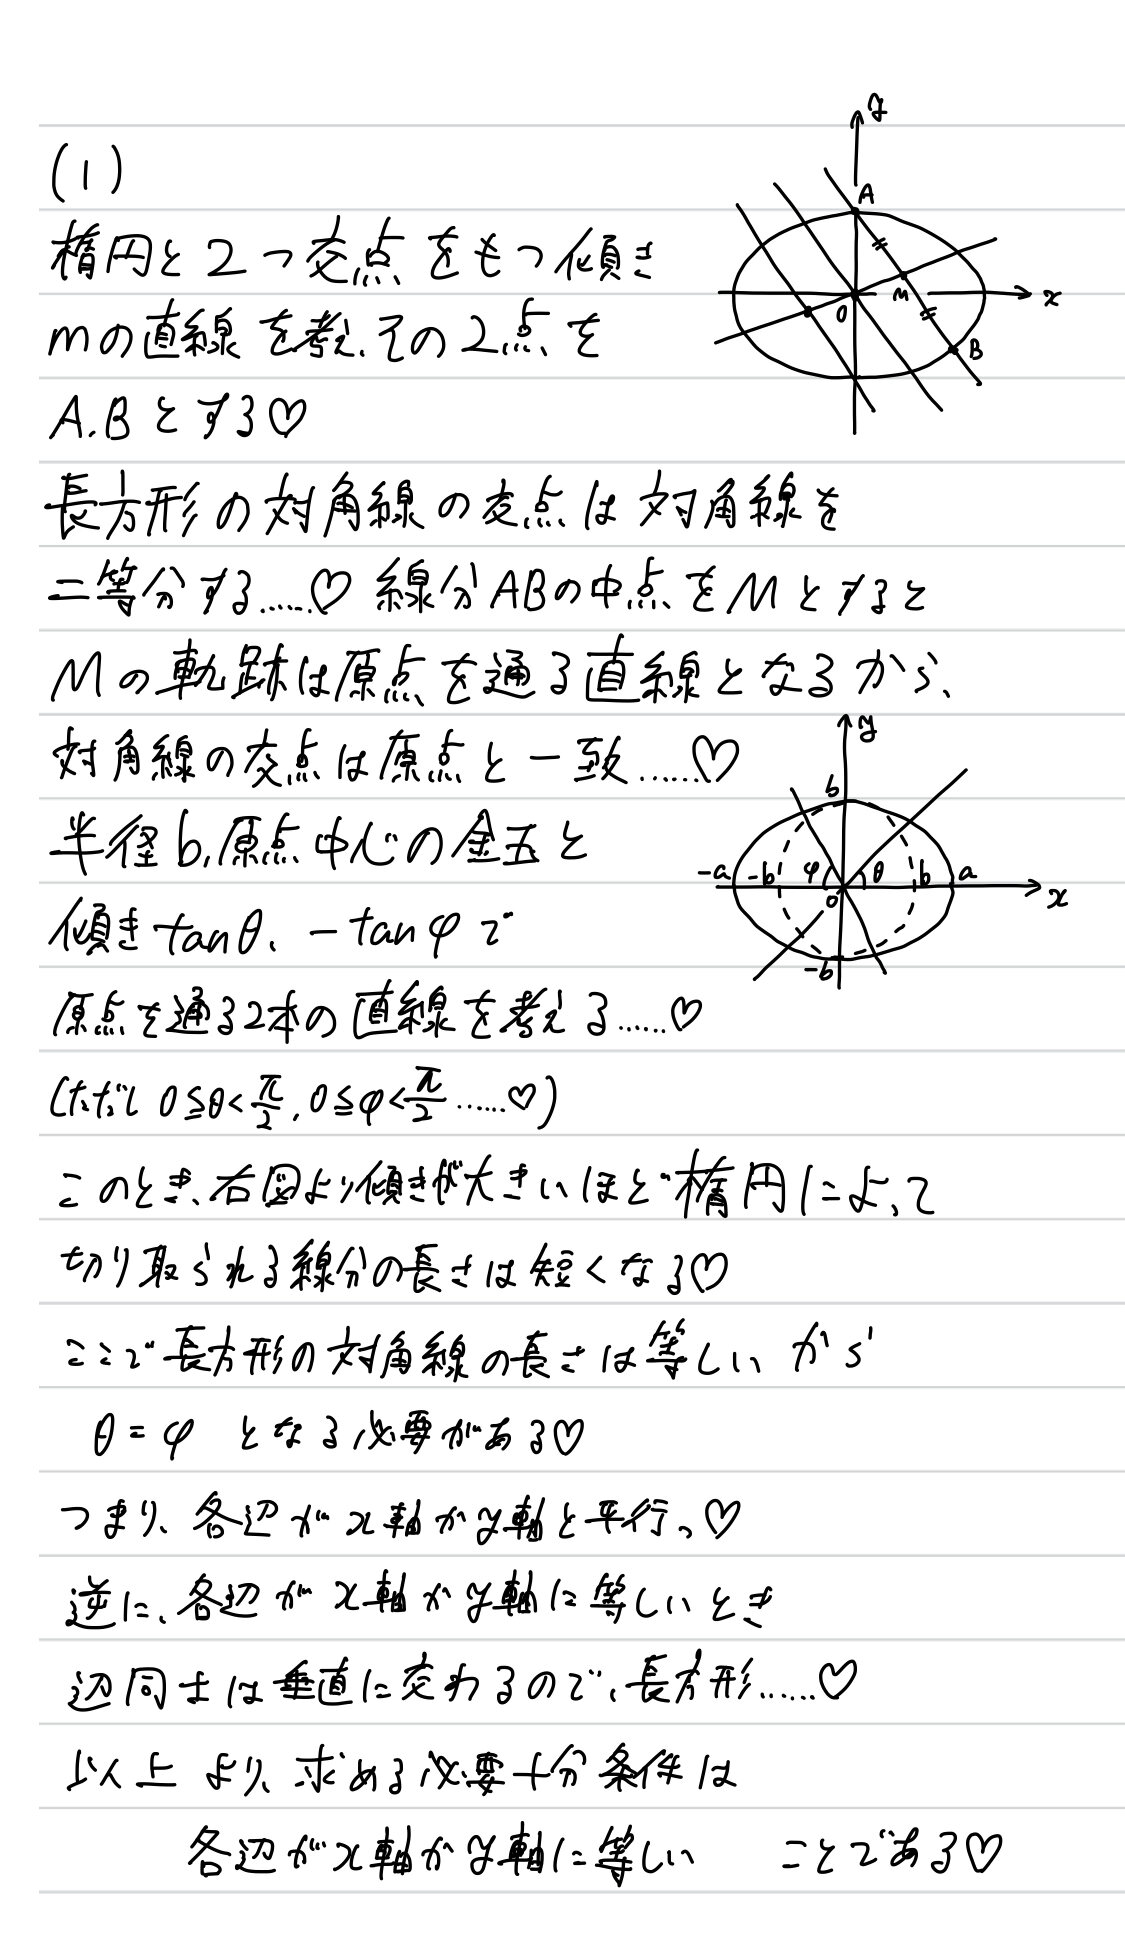 (1)
楕円と2つ交点をもつ傾き
mの直線を考え、その2点を
A.Bとする♡
長方形の対角線の交点は対角線を
二等分する……♡ 線分ABの中点をMとすると
Mの軌跡は原点を通る直線となるから、
対角線の交点は原点と一致……♡
半径b,原点中心の金玉と
傾きtanθ、-tanφで
原点を通る2本の直線を考える……♡
(ただし 0≦θ<π/2, 0≦φ<π/2……♡)
このとき、右図より傾きが大きいほど楕円によって
切り取られる線分の長さは短くなる♡
ここで長方形の対角線の長さは等しいから
θ=φ となる必要がある♡
つまり、各辺がx軸かy軸と平行っ♡
逆に、各辺がx軸かy軸に等しいとき
辺同士は垂直に交わるので、長方形……♡
以上より、求める必要十分条件は
各辺がx軸かy軸に等しい ことである♡
y
A
M
O
x
B
y
b
-a -b φ θ b a
O
x
-b